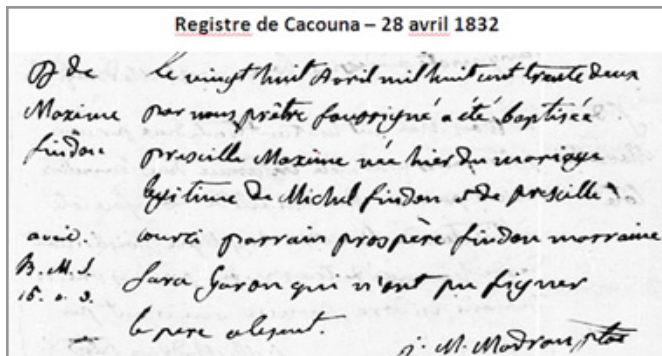 Registre de Cacouna – 28 avril 1832
B de
Maxime
findon
Le vingt huit Avril mil huit cent trente deux
par nous prêtre soussigné a été baptisée
priscille Maxime née hier du mariage
légitime de Michel findon & de priscille
courci parrain prospère findon marraine
Sara Garon qui n'ont pu signer
le pere absent.
J. M. Madran, ptre
B. M. S.
15. a. 3.